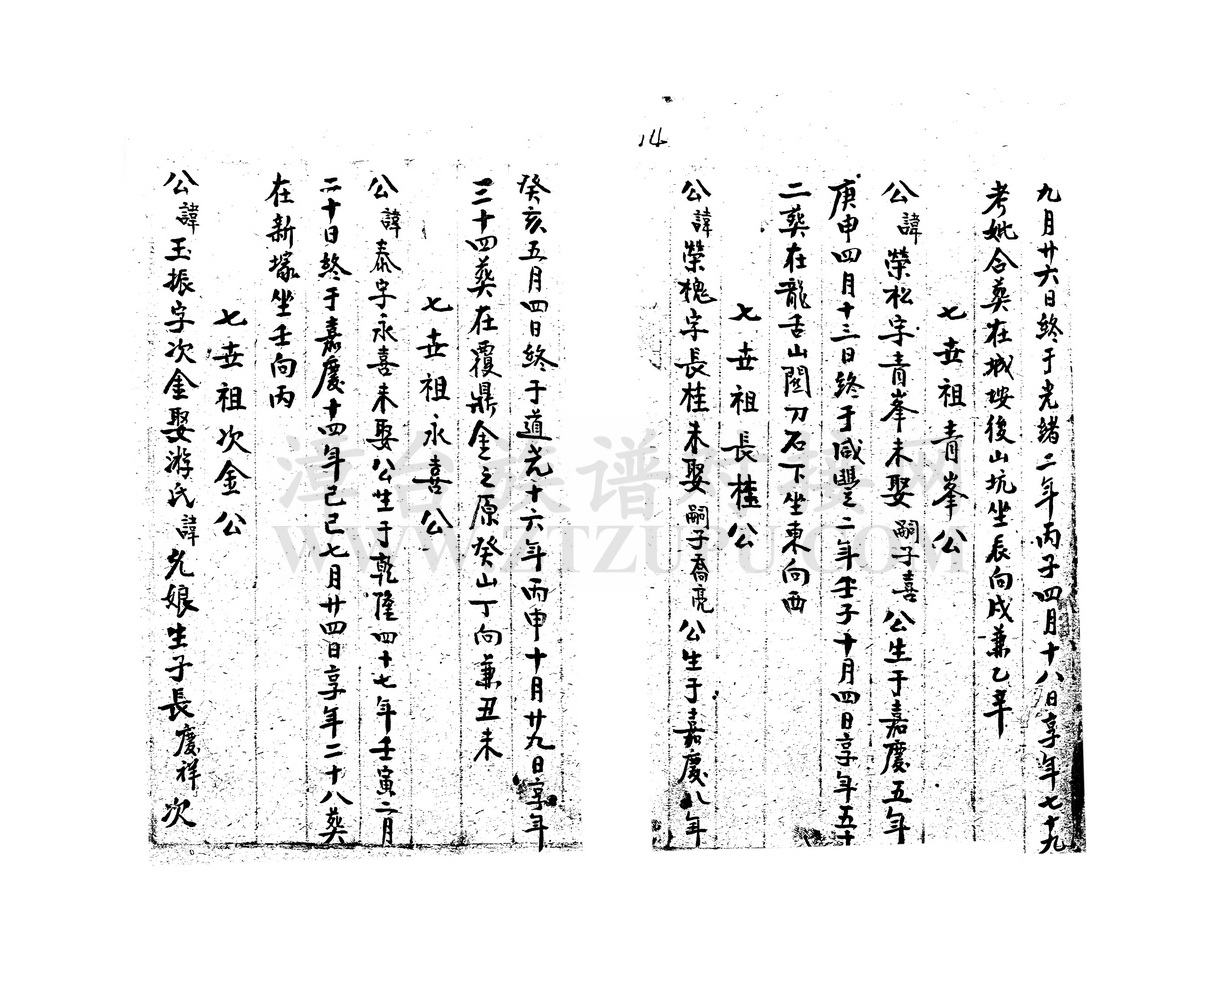 14
九月廿六日終于光緒二年丙子四月十八日享年七十九
考妣合葬在城垵後山坑坐辰向戌兼乙辛
七世祖青峯公
公諱榮松字青峯未娶嗣子喜公生于嘉慶五年
庚申四月十三日終于咸豐二年壬子十月四日享年五十
二葬在龍舌山閣刀石下坐東向西
七世祖長桂公
公諱榮槐字長桂未娶嗣子喬亮公生于嘉慶八年
癸亥五月四日終于道光十六年丙申十月廿九日享年
三十四葬在覆鼎金之原癸山丁向兼丑未
七世祖永喜公
公諱泰字永喜未娶公生于乾隆四十七年壬寅二月
二十日終于嘉慶十四年己巳七月廿四日享年二十八葬
在新塚坐壬向丙
七世祖次金公
公諱玉振字次金娶游氏諱光娘生子長慶祥次
漳台族谱对接网
WWW.ZTZUPU.COM